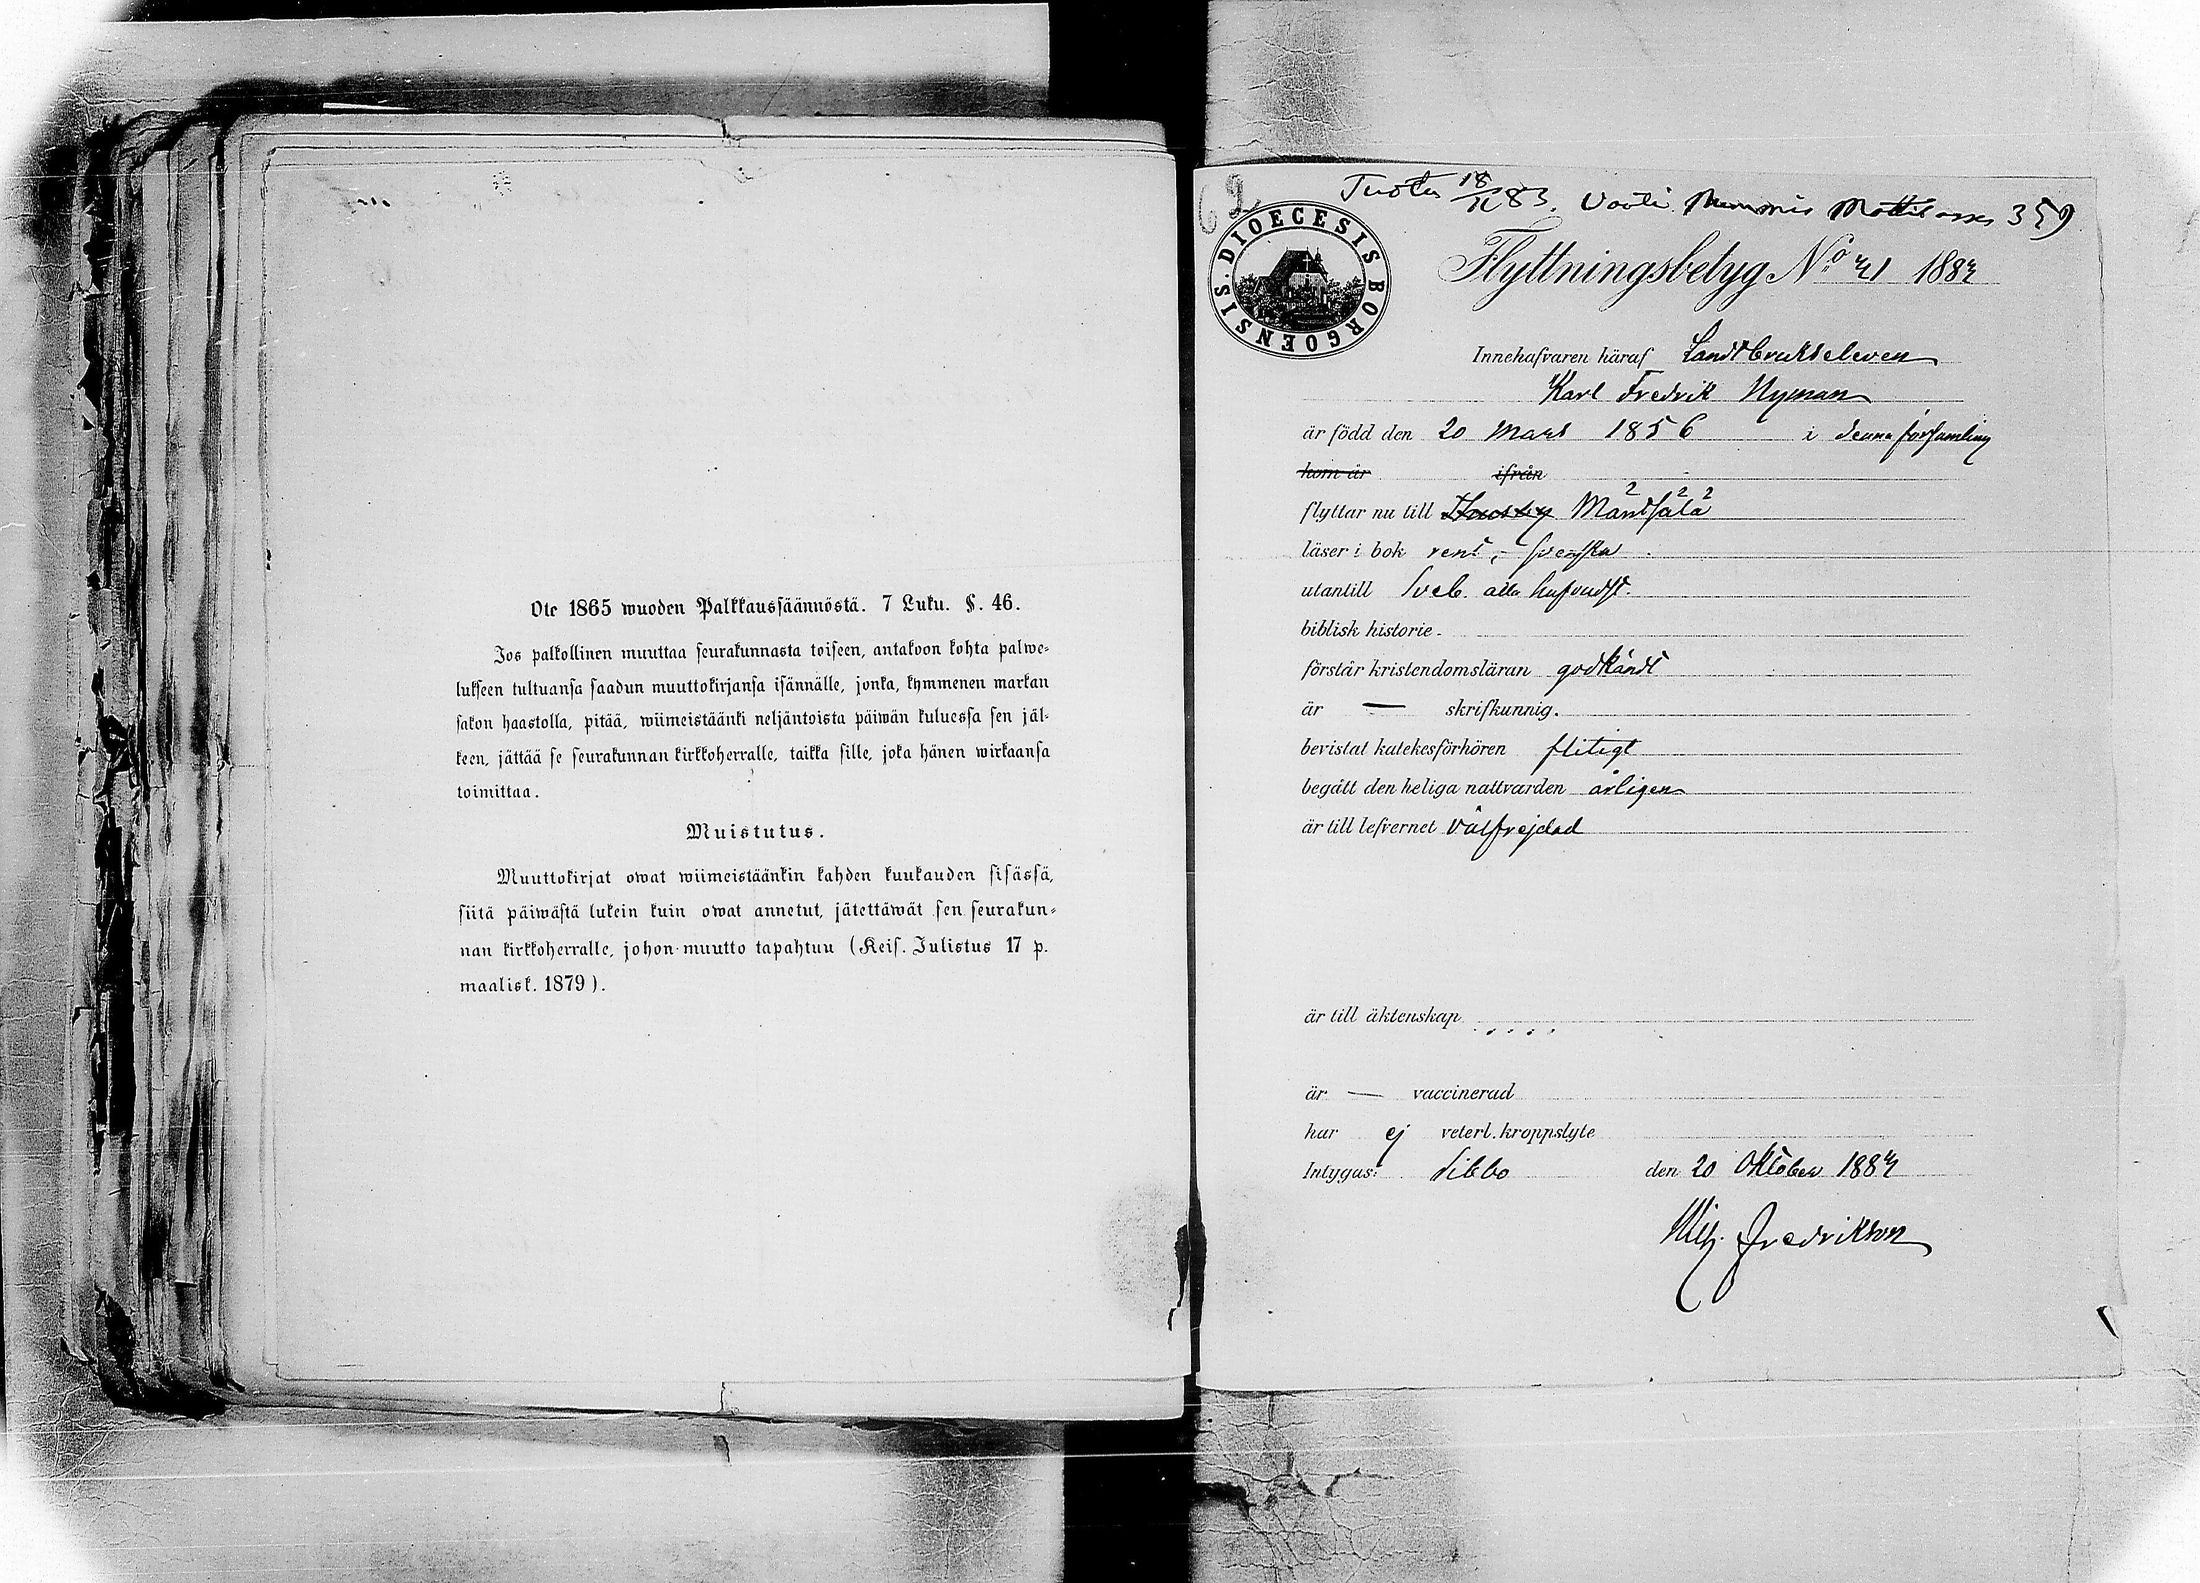 Ote 1865 wuoden Palkkaussäännöstä. 7 Luku. §. 46.
Jos palkollinen muuttaa seurakunnasta toiseen, antakoon kohta palwe-
lukseen tultuansa saadun muuttokirjansa isännälle, jonka, kymmenen markan
sakon haastolla, pitää, wiimeistäänki neljäntoista päiwän kuluessa sen jäl-
keen, jättää se seurakunnan kirkkoherralle, taikka sille, joka hänen wirkaansa
toimittaa.
Muistutus.
Muuttokirjat owat wiimeistäänkin kahden kuukauden sisässä,
siitä päiwästä lukein kuin owat annetut, jätettäwät sen seurakun-
nan kirkkoherralle, johon muutto tapahtuu (Keis. Julistus 17 p.
maalisk. 1879).
62
Tuotu 18/11 83. Vouti Nummis Mattilassa 359
DIOECESIS BORGOENSIS.
Flyttningsbetyg No 41 1883
Innehafvaren häraf Landtbrukseleven
Karl Fredrik Nyman
är född den 20 Mars 1856 i denna församling
kom år ifrån
flyttar nu till Husby Mäntsälä
läser i bok rent, svenska
utantill Sveb. alla hufvudst.
biblisk historie.
förstår kristendomsläran godkändt
är — skrifkunnig.
bevistat katekesförhören flitigt
begått den heliga nattvarden årligen
är till lefvernet välfrejdad
är till äktenskap
är — vaccinerad
har ej veterl. kroppslyte
Intygas: Sibbo den 20 Oktober 1883
Fredrikson